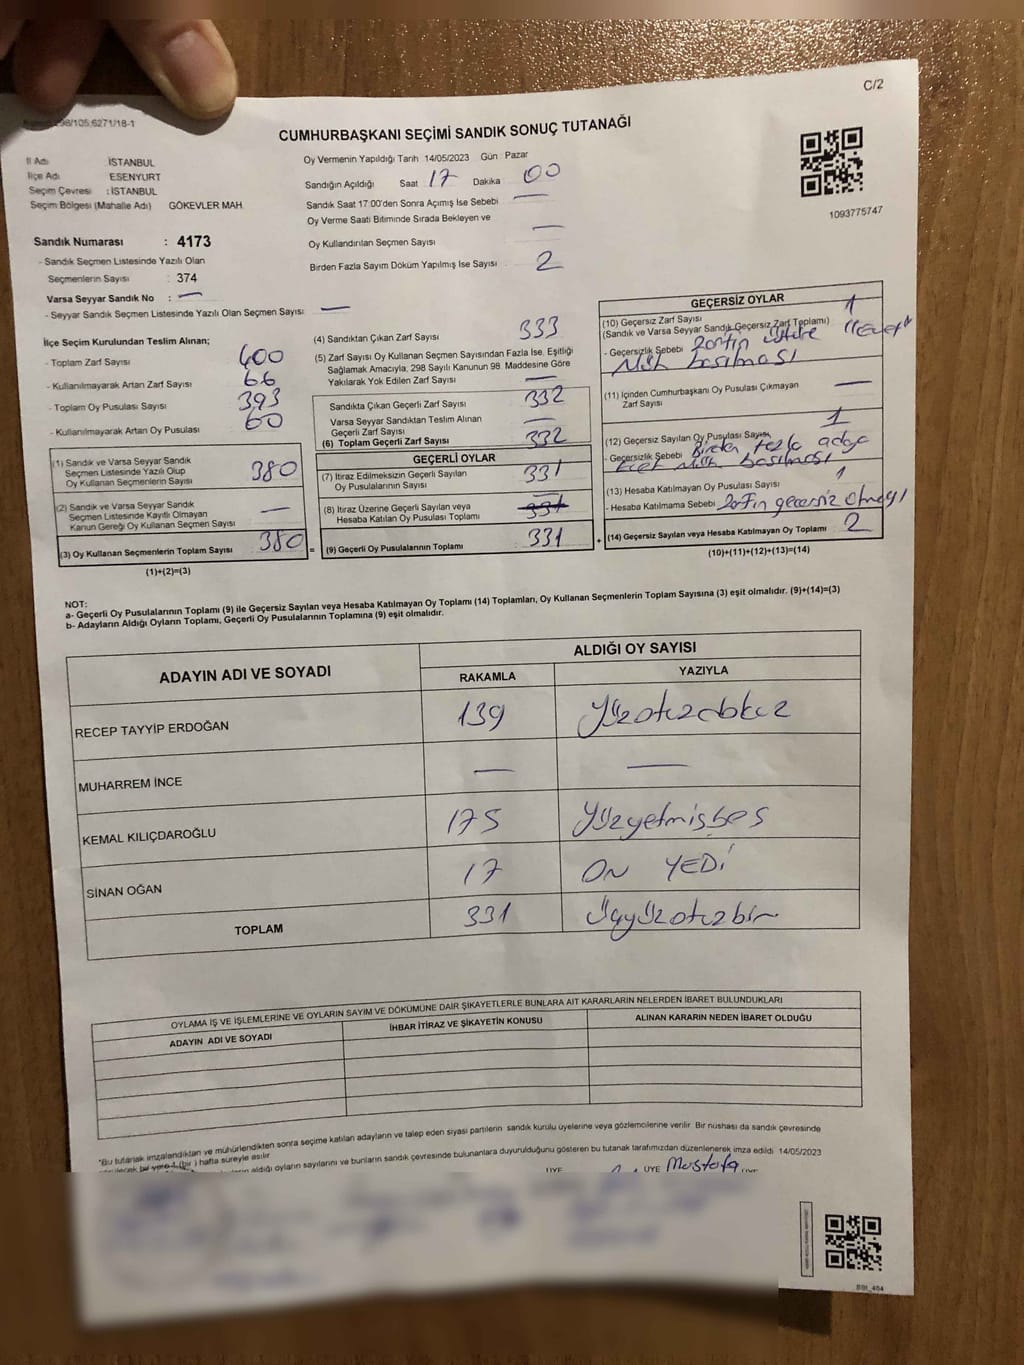 C/2
CUMHURBAŞKANI SEÇİMİ SANDIK SONUÇ TUTANAĞI
İl Adı : İSTANBUL
İlçe Adı : ESENYURT
Seçim Çevresi : İSTANBUL
Seçim Bölgesi (Mahalle Adı) GÖKEVLER MAH.
Sandık Numarası : 4173
- Sandık Seçmen Listesinde Yazılı Olan
Seçmenlerin Sayısı : 374
Varsa Seyyar Sandık No : —
- Seyyar Sandık Seçmen Listesinde Yazılı Olan Seçmen Sayısı: —
Oy Vermenin Yapıldığı Tarih 14/05/2023 Gün : Pazar
Sandığın Açıldığı Saat 17 Dakika 00
Sandık Saat 17:00'den Sonra Açımış İse Sebebi —
Oy Verme Saati Bitiminde Sırada Bekleyen ve
Oy Kullandırılan Seçmen Sayısı —
Birden Fazla Sayım Döküm Yapılmış İse Sayısı 2
1093775747
İlçe Seçim Kurulundan Teslim Alınan;
- Toplam Zarf Sayısı : 400
- Kullanılmayarak Artan Zarf Sayısı : 66
- Toplam Oy Pusulası Sayısı : 393
- Kullanılmayarak Artan Oy Pusulası : 60
(1) Sandık ve Varsa Seyyar Sandık
Seçmen Listesinde Yazılı Olup
Oy Kullanan Seçmenlerin Sayısı 380
(2) Sandık ve Varsa Seyyar Sandık
Seçmen Listesinde Kayıtlı Olmayan
Kanun Gereği Oy Kullanan Seçmen Sayısı —
(3) Oy Kullanan Seçmenlerin Toplam Sayısı 380
(1)+(2)=(3)
(4) Sandıktan Çıkan Zarf Sayısı 333
(5) Zarf Sayısı Oy Kullanan Seçmen Sayısından Fazla İse, Eşitliği
Sağlamak Amacıyla, 298 Sayılı Kanunun 98. Maddesine Göre
Yakılarak Yok Edilen Zarf Sayısı —
Sandıkta Çıkan Geçerli Zarf Sayısı 332
Varsa Seyyar Sandıktan Teslim Alınan
Geçerli Zarf Sayısı —
(6) Toplam Geçerli Zarf Sayısı 332
GEÇERLİ OYLAR
(7) İtiraz Edilmeksizin Geçerli Sayılan
Oy Pusulalarının Sayısı 331
(8) İtiraz Üzerine Geçerli Sayılan veya
Hesaba Katılan Oy Pusulası Toplamı 331
= (9) Geçerli Oy Pusulalarının Toplamı 331
GEÇERSİZ OYLAR
(10) Geçersiz Zarf Sayısı 1
(Sandık ve Varsa Seyyar Sandık Geçersiz Zarf Toplamı)
- Geçersizlik Sebebi zarfın üstüne "Evet"
Mühü basılması
(11) İçinden Cumhurbaşkanı Oy Pusulası Çıkmayan
Zarf Sayısı —
(12) Geçersiz Sayılan Oy Pusulası Sayısı 1
- Geçersizlik Sebebi Birden fazla adaya
Evet Mühü basılması
(13) Hesaba Katılmayan Oy Pusulası Sayısı 1
- Hesaba Katılmama Sebebi zarfın geçersiz olmayı
+ (14) Geçersiz Sayılan veya Hesaba Katılmayan Oy Toplamı 2
(10)+(11)+(12)+(13)=(14)
NOT:
a- Geçerli Oy Pusulalarının Toplamı (9) ile Geçersiz Sayılan veya Hesaba Katılmayan Oy Toplamı (14) Toplamları, Oy Kullanan Seçmenlerin Toplam Sayısına (3) eşit olmalıdır. (9)+(14)=(3)
b- Adayların Aldığı Oyların Toplamı, Geçerli Oy Pusulalarının Toplamına (9) eşit olmalıdır.
ADAYIN ADI VE SOYADI ALDIĞI OY SAYISI
RAKAMLA YAZIYLA
RECEP TAYYİP ERDOĞAN 139 Yüzotuzdokuz
MUHARREM İNCE — —
KEMAL KILIÇDAROĞLU 175 Yüzyetmişbeş
SİNAN OĞAN 17 ON YEDİ
TOPLAM 331 Üçyüzotuzbir
OYLAMA İŞ VE İŞLEMLERİNE VE OYLARIN SAYIM VE DÖKÜMÜNE DAİR ŞİKAYETLERLE BUNLARA AİT KARARLARIN NELERDEN İBARET BULUNDUKLARI
ADAYIN ADI VE SOYADI İHBAR İTİRAZ VE ŞİKAYETİN KONUSU ALINAN KARARIN NEDEN İBARET OLDUĞU
*Bu tutanak imzalandıktan ve mühürlendikten sonra seçime katılan adayların ve talep eden siyasi partilerin sandık kurulu üyelerine veya gözlemcilerine verilir. Bir nüshası da sandık çevresinde
(bir ) hafta süreyle asılır
aldığı oyların sayılarını ve bunların sandık çevresinde bulunanlara duyurulduğunu gösteren bu tutanak tarafımızdan düzenlenerek imza edildi 14/05/2023
ÜYE ÜYE Mustafa